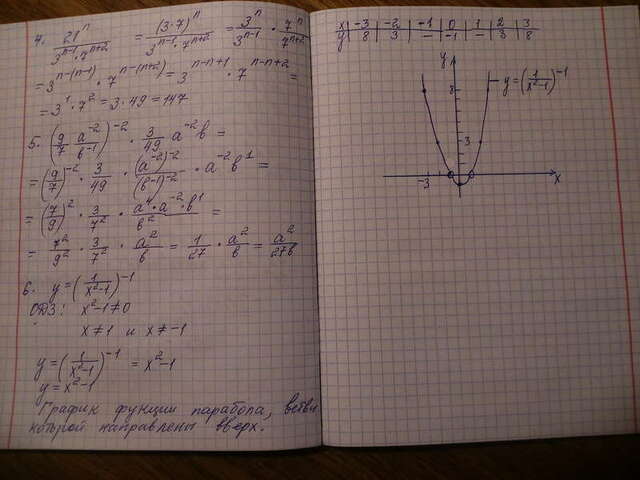 4. 21^n / (3^(n-1)·7^(n+2)) = (3·7)^n / (3^(n-1)·7^(n+2)) = 3^n / 3^(n-1) · 7^n / 7^(n+2)
= 3^(n-(n-1)) · 7^(n-(n+2)) = 3^(n-n+1) · 7^(n-n+2) =
= 3^1 · 7^2 = 3 · 49 = 147
5. (9/7 a^(-2)/b^(-1))^(-2) · 3/49 a^(-2) b =
= (9/7)^(-2) · 3/49 · (a^(-2))^(-2) / (b^(-1))^(-2) · a^(-2) b^1 =
= (7/9)^2 · 3/7^2 · a^4·a^(-2)·b^1 / b^2 =
= 7^2/9^2 · 3/7^2 · a^2/b = 1/27 · a^2/b = a^2/27b
6. y = (1/(x^2-1))^(-1)
ОДЗ: x^2-1≠0
x≠1 и x≠-1
y = (1/(x^2-1))^(-1) = x^2-1
y = x^2-1
График функции парабола, ветви
которой направлены вверх.
x -3 -2 -1 0 1 2 3
y 8 3 — -1 — 3 8
y
8
y = (1/(x^2-1))^(-1)
3
-3
x